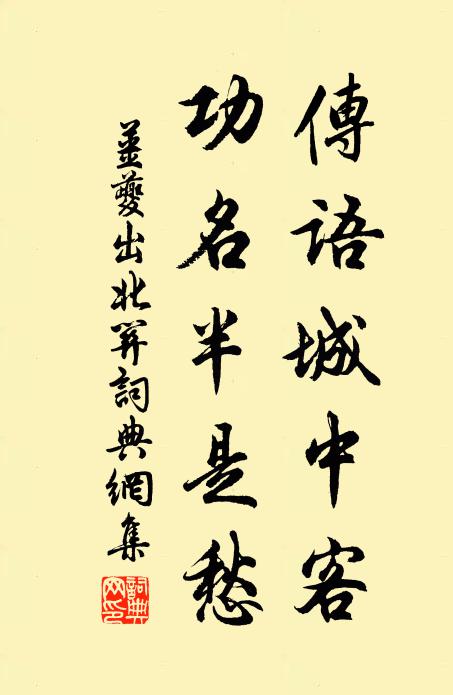 傳語城中客
功名半是愁
薑夔出北關詞典網集
詞典
网印